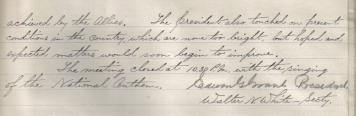 achieved by the Allies. The President also touched on present
conditions in the country, which are none too bright, but hoped and
expected matters would soon begin to improve.
The meeting closed at 10.30 P.m. with the singing
of the National Anthem. President
Walter N White - Secty.